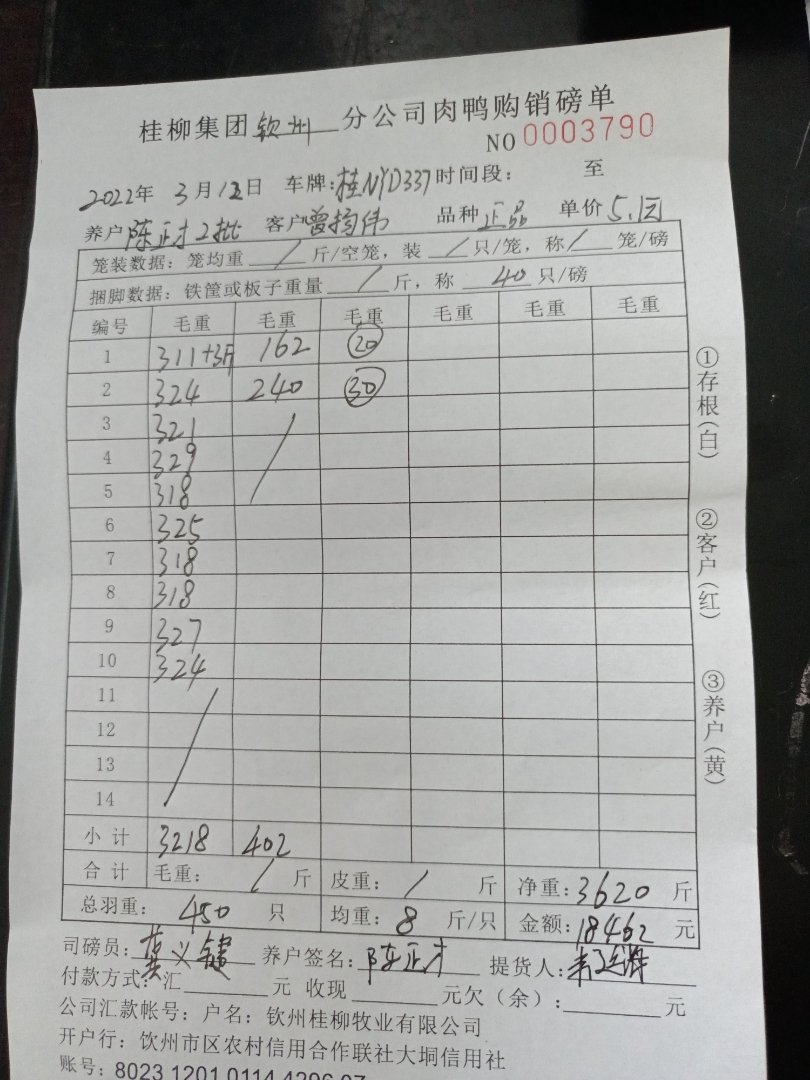 桂柳集团 钦州 分公司肉鸭购销磅单
NO 0003790
2022年 3月12日 车牌:桂NYD337 时间段: 至
养户 陈正才2批 客户 曾 伟 品种 正品 单价 5.1元
笼装数据:笼均重 / 斤/空笼,装 / 只/笼,称 / 笼/磅
捆脚数据:铁筐或板子重量 / 斤,称 40 只/磅
编号 毛重 毛重 毛重 毛重 毛重 毛重
1 311+3斤 162 20
2 324 240 30
3 321 /
4 329
5 318
6 325
7 318
8 318
9 327
10 324
11 /
12
13
14
小计 3218 402
合计 毛重: / 斤 皮重: / 斤 净重:3620 斤
总羽重: 450 只 均重: 8 斤/只 金额:18462 元
司磅员: 义键 养户签名:陈正才 提货人:
付款方式:汇 元 收现 元欠(余): 元
公司汇款帐号:户名:钦州桂柳牧业有限公司
开户行:钦州市区农村信用合作联社大垌信用社
账号:8023 1201 0114 4296 07
①存根(白)
②客户(红)
③养户(黄)